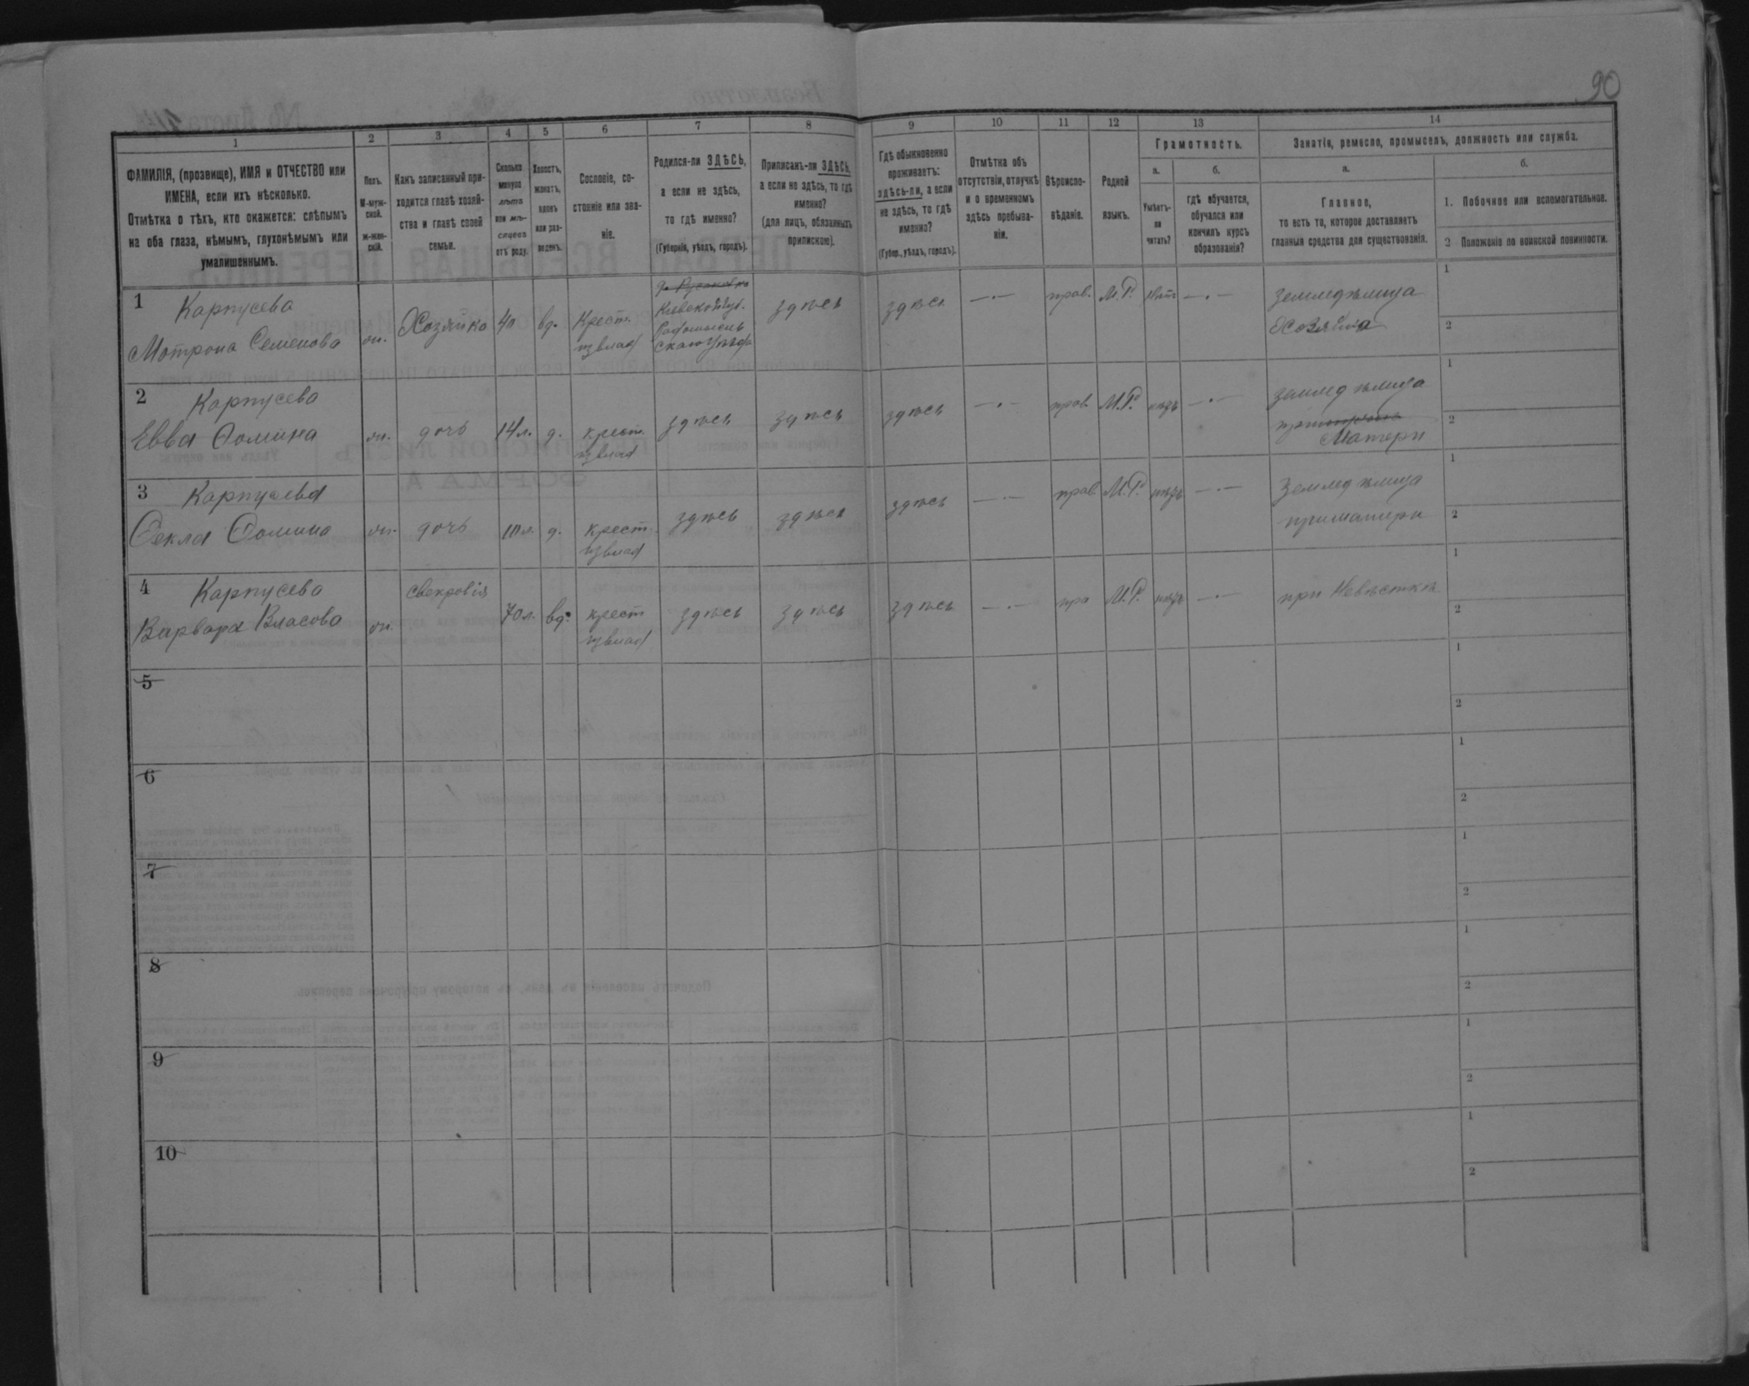 90
1
2
3
4
5
6
7
8
9
10
11
12
13
14
ФАМИЛІЯ, (прозвище), ИМЯ и ОТЧЕСТВО или
ИМЕНА, если ихъ нѣсколько.
Отмѣтка о тѣхъ, кто окажется: слѣпымъ
на оба глаза, нѣмымъ, глухонѣмымъ или
умалишеннымъ.
Полъ.
М-муж-
ской.
ж-жен-
скій.
Какъ записанный при-
ходится главѣ хозяй-
ства и главѣ своей
семьи.
Сколько
минуло
лѣтъ
или мѣ-
сяцевъ
отъ роду.
Холостъ,
женатъ,
вдовъ
или раз-
веденъ.
Сословіе, со-
стояніе или зва-
ніе.
Родился-ли ЗДѢСЬ,
а если не здѣсь,
то гдѣ именно?
(Губернія, уѣздъ, городъ).
Приписанъ-ли ЗДѢСЬ,
а если не здѣсь, то гдѣ
именно?
(для лицъ, обязанныхъ
припискою).
Гдѣ обыкновенно
проживаетъ:
здѣсь-ли, а если
не здѣсь, то гдѣ
именно?
(Губер., уѣздъ, городъ).
Отмѣтка объ
отсутствіи, отлучкѣ
и о временномъ
здѣсь пребыва-
ніи.
Вѣроиспо-
вѣданіе.
Родной
языкъ.
Грамотность.
а.
б.
Умѣетъ-
ли
читать?
гдѣ обучается,
обучался или
кончилъ курсъ
образованія?
Занятіе, ремесло, промыселъ, должность или служба.
а.
б.
Главное,
то есть то, которое доставляетъ
главныя средства для существованія.
1. Побочное или вспомогательное.
2 Положеніе по воинской повинности.
1 Карпусева
Мотрона Семенова
Хозяйка
вд.
Крест.
здѣсь
здѣсь
—·—
прав.
М.Р.
—·—
земледѣлица
Хозяйка
1
2
2 Карпусева
Евва Ѳомина
дочь
14л.
д.
крест
здѣсь
здѣсь
здѣсь
—·—
прав.
М.Р.
—·—
земледѣлица
Матери
1
2
3 Карпусева
Ѳекла Ѳомина
дочь
10л.
д.
крест.
здѣсь
здѣсь
здѣсь
—·—
прав.
М.Р.
—·—
Земледѣлица
приматери
1
2
4 Карпусева
Варвара Власова
свекровія
70л.
вд.
крест
здѣсь
здѣсь
здѣсь
—·—
пра
М.Р.
—·—
при Невѣсткѣ
1
2
5
1
2
6
1
2
7
1
2
8
1
2
9
1
2
10
1
2